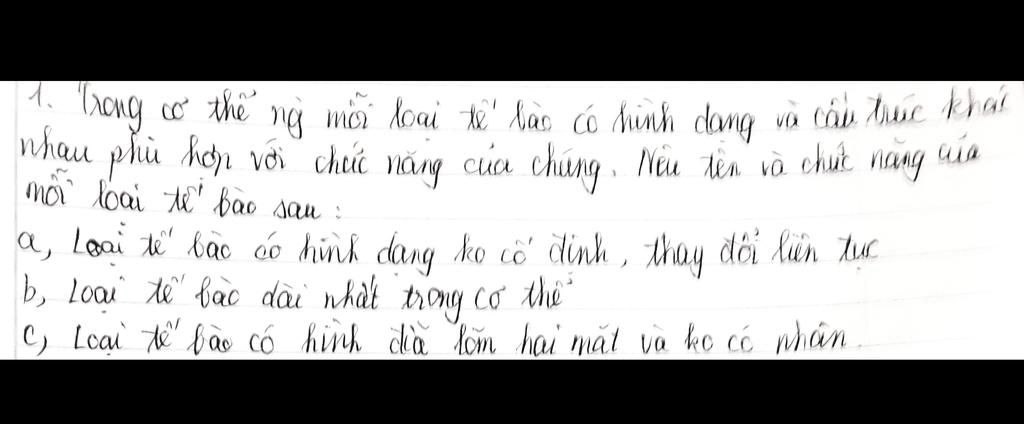 1. Trong cơ thể ng mỗi loại tế bào có hình dạng và cấu trúc khác
nhau phù hợp với chức năng của chúng. Nêu tên và chức năng của
mỗi loại tế bào sau:
a, Loại tế bào có hình dạng ko cố định, thay đổi liên tục
b, Loại tế bào dài nhất trong cơ thể
c, Loại tế bào có hình đĩa lõm hai mặt và ko có nhân.